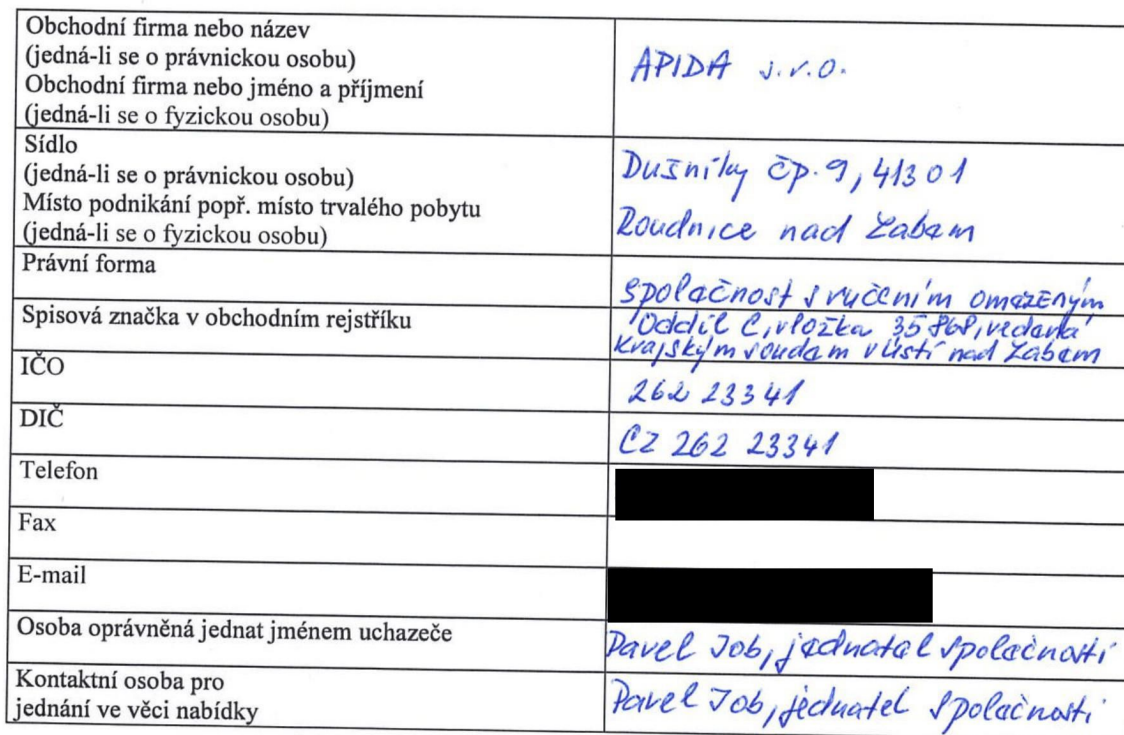 Obchodní firma nebo název
(jedná-li se o právnickou osobu)
Obchodní firma nebo jméno a příjmení
(jedná-li se o fyzickou osobu)
APIDA s.r.o.
Sídlo
(jedná-li se o právnickou osobu)
Místo podnikání popř. místo trvalého pobytu
(jedná-li se o fyzickou osobu)
Dušníky čp. 9, 41301
Roudnice nad Labem
Právní forma
společnost s ručením omezeným
Spisová značka v obchodním rejstříku
Oddíl C, vložka vedená
Krajským soudem v Ústí nad Labem
IČO
262 23341
DIČ
CZ 262 23341
Telefon
Fax
E-mail
Osoba oprávněná jednat jménem uchazeče
Pavel Job, jednatel společnosti
Kontaktní osoba pro
jednání ve věci nabídky
Pavel Job, jednatel společnosti